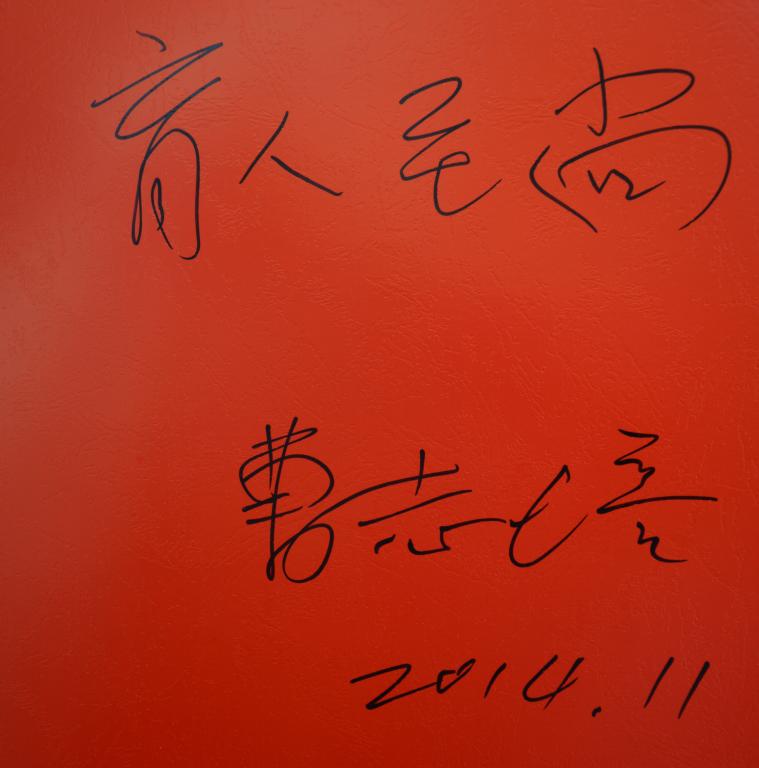 育人至尚
曹志培
2014.11